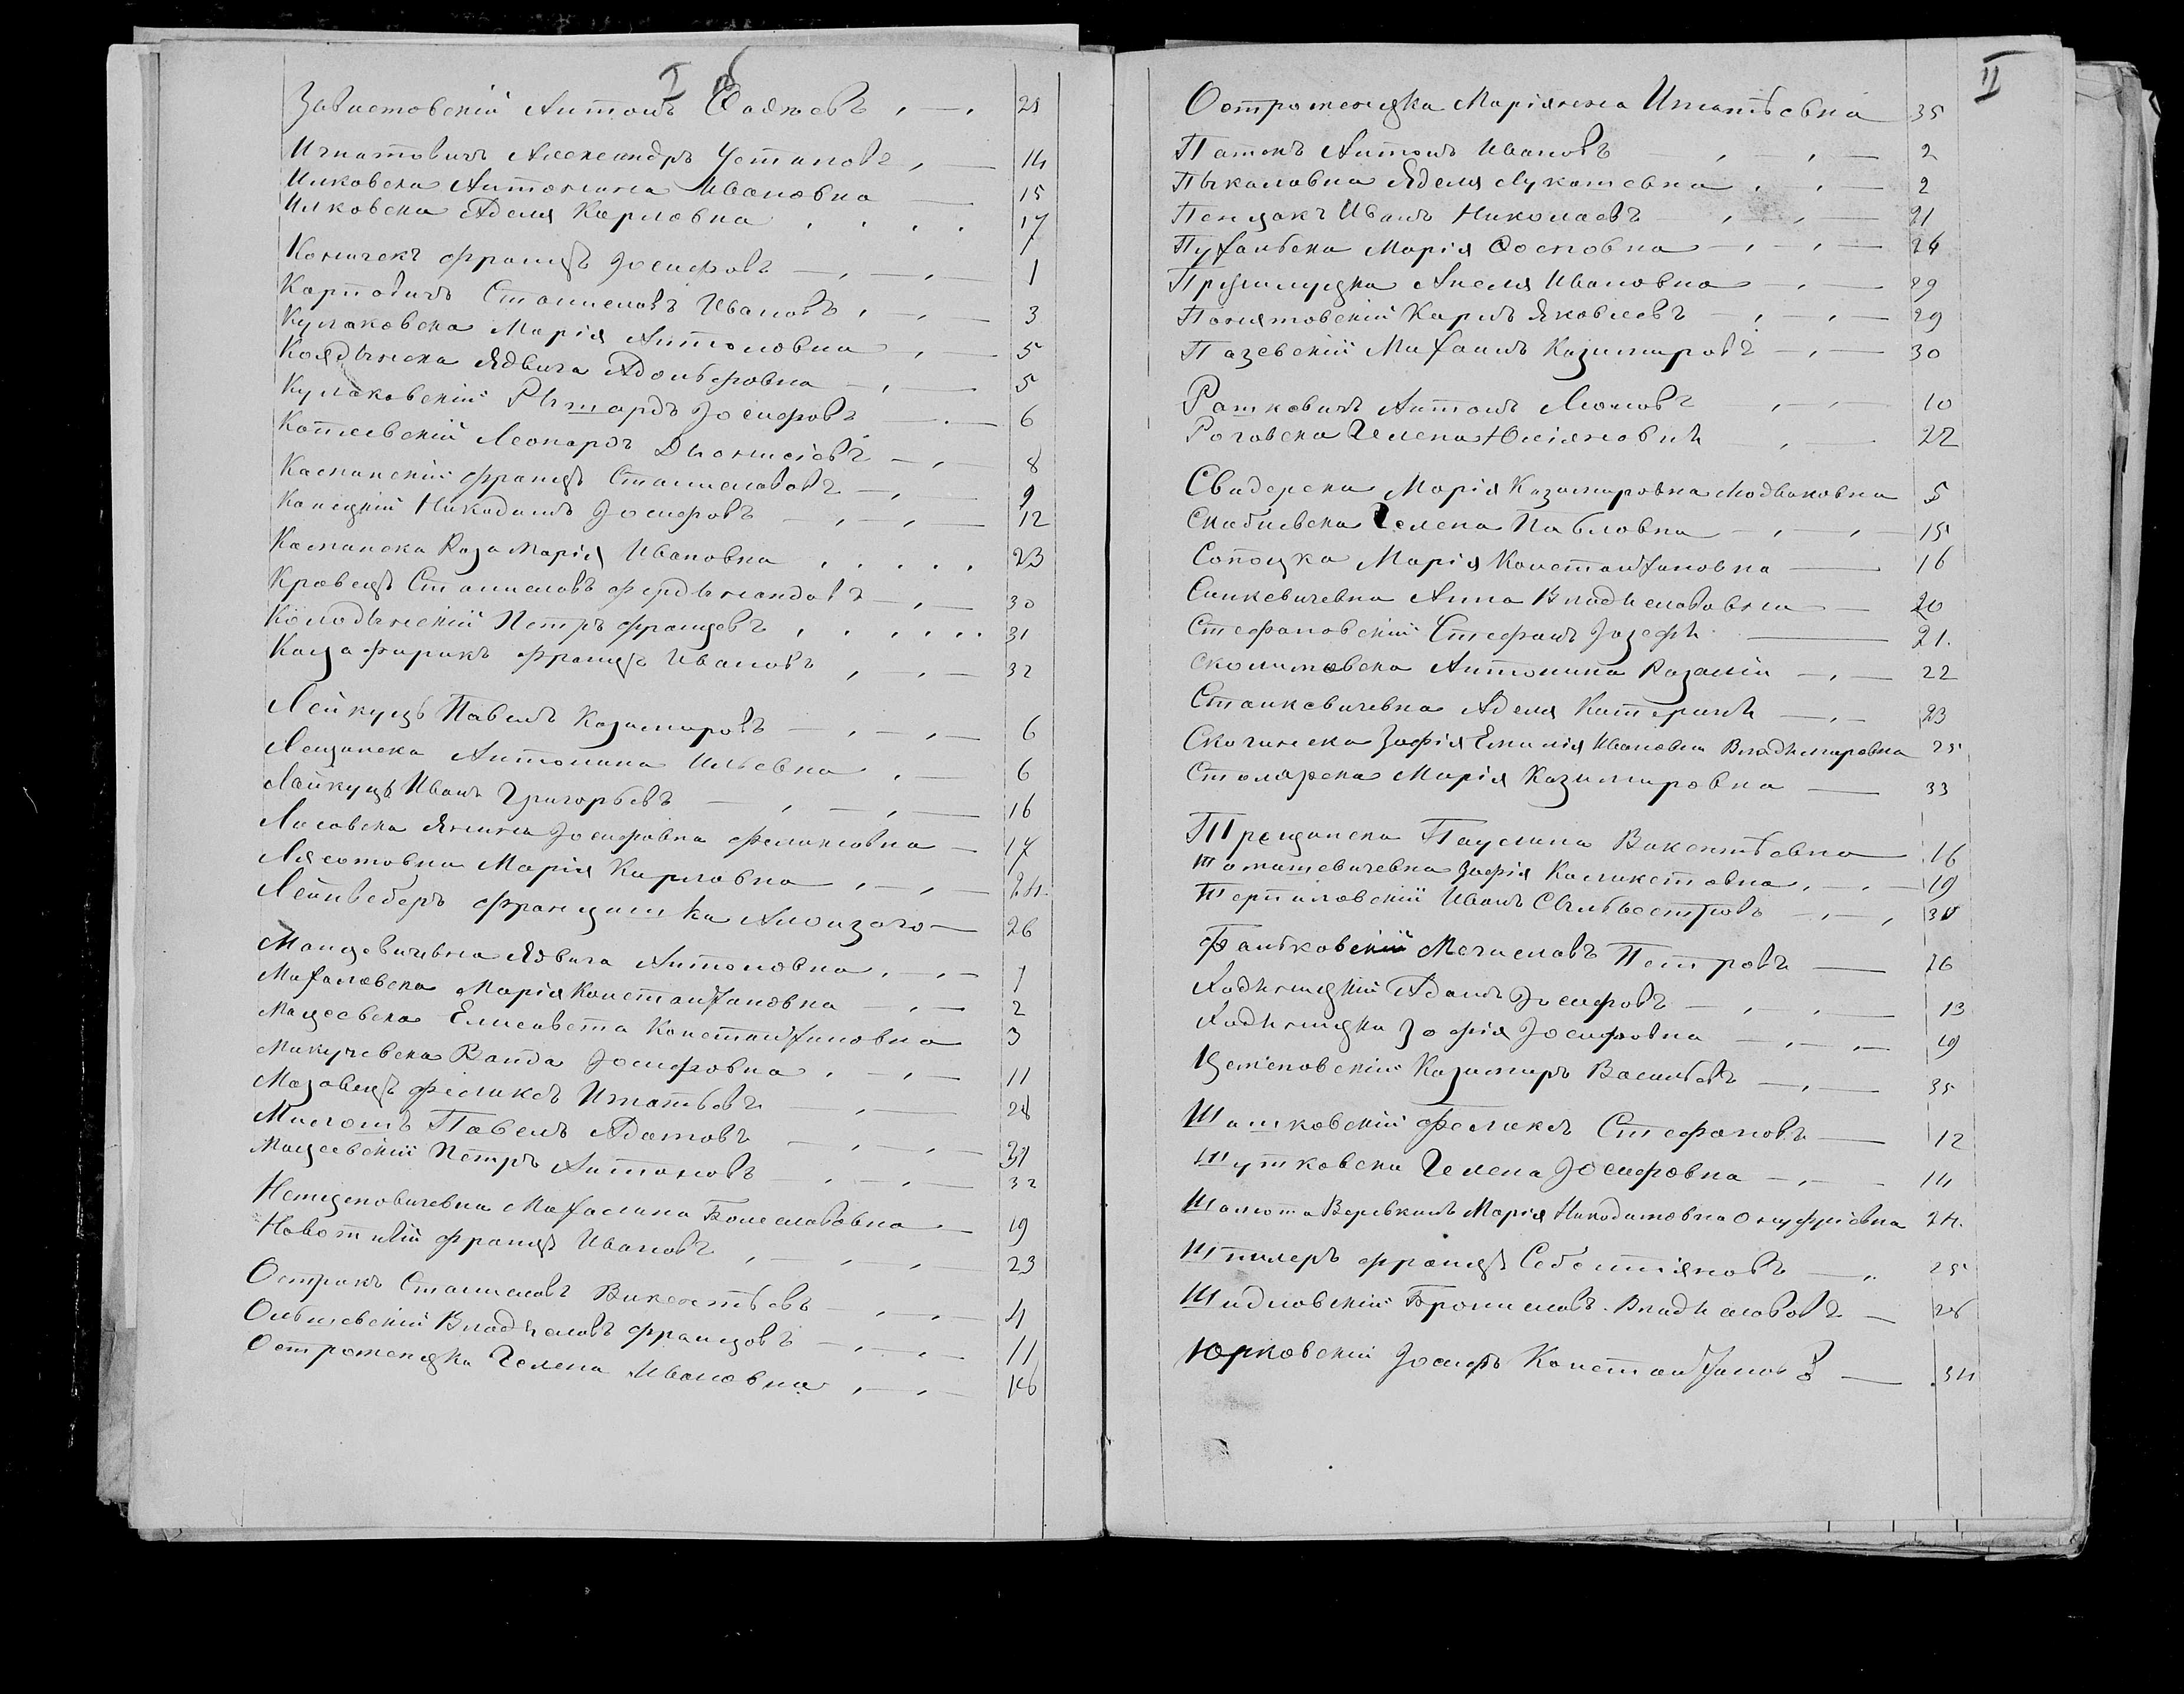 I
Завистовскій Антонъ 25
Игнатовичъ Александръ Устиновъ 14
Илковска Антонина Ивановна 15
Илковска Аделя Карловна 17
Коничекъ Францъ Іосифовъ 1
Карповичъ Станиславъ Ивановъ 3
Кулаковска Марія Антоновна 5
Коядынска Ядвига Адольфовна 5
Кулаковскій Рышардъ Іосифовъ 6
Котлевскій Леонардъ Діонисіевъ 8
Каспинскій Францъ Станиславовъ 9
Канецкій Никодимъ Іосифовъ 12
Каспинска Роза Марія Ивановна 23
Кравецъ Станиславъ Фердынандовъ 30
Колодынскій Петръ Францевъ 31
Францъ Ивановъ 32
Лейкуцъ Павелъ Казимировъ 6
Лещинска Антонина Ильевна 6
Лейкуцъ Иванъ Григорьевъ 16
Лисовска Янина Іосифовна Феликсовна 17
Лясотовна Марія Карловна 24.
Лейнведеръ Францишка Алоизого 26
Манцевичевна Ядвига Антоновна 1
Михаловска Марія Константиновна 2
Мацеевска Елисавета Константиновна 3
Микучевска Ванда Іосифовна 11
Мазовецъ Феликсъ Игнатьевъ 28
Милошъ Павелъ Адамовъ 31
Мацеевскій Петръ Антоновъ 32
Немценовичевна Михалина Болеславовна 19
Новотный Францъ Ивановъ 23
Острикъ Станиславъ Викентьевъ 4
Ольшевскій Владыславъ Францовъ 11
Остроменцка Гелена Ивановна 16
II
Остроменцка Маріянна Игнатьевна 35
Патокъ Антонъ Ивановъ 2
Пыкаловна Аделя Лукашевна 2
Пенцакъ Иванъ Николаевъ 21
Пухальска Марія Осиповна 24
Анеля Ивановна 29
Понятовскій Карлъ Яковлевъ 29
Пазевскій Михаилъ Казимировъ 30
Рошковичъ Антонъ Леоновъ 10
Роговска Гелена Юліяновны 22
Свидерска Марія Казимировна Людвиковна 5
Скабиевска Гелена Павловна 15
Сопоцка Марія Константиновна 16
Синкевичевна Анна Владыславовна 20
Стефановскій Стефанъ Іозефы 21.
Сколимовска Антонина Розаліи 22
Станкевичевна Аделя Катерины 23
Скочинска Зофія Емилія Ивановна Владымировна 25
Столярска Марія Казимировна 33
Трещинска Паулина Викентьевна 16
Томашевичевна Зофія Каликстовна 19
Терпиловскій Иванъ Сыльвестровъ 30
Фалбковскій Мечиславъ Петровъ 26
Ходыницкій Адамъ Іосифовъ 13
Ходыницка Зофія Іосифовна 19
Казимиръ Васильевъ 35
Шашковскій Феликсъ Стефановъ 12
Шутковска Гелена Іосифовна 14
Шалюта Веревкинъ Марія Никодимовна Онуфріевна 24.
Штилеръ Францъ Себестіяновъ 25
Шидловскій Брониславъ Владыславовъ 26
Юрковскій Іосифъ Константиновъ 34